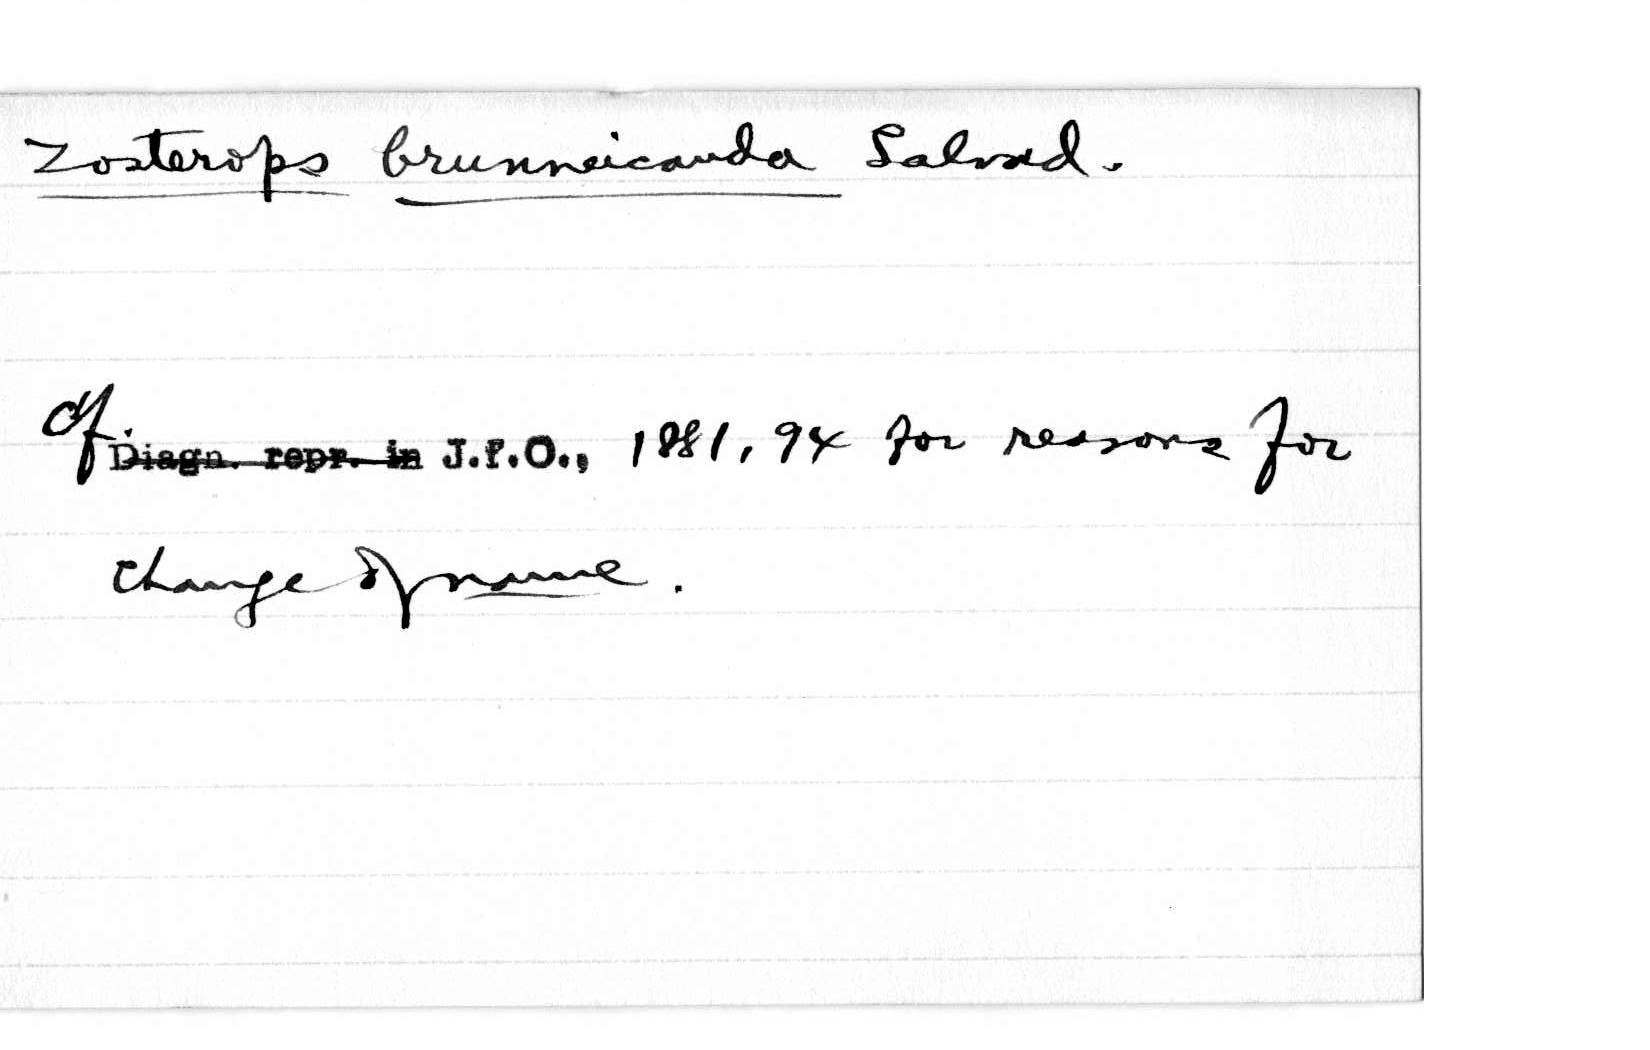 Zosterops brunneicauda Salvad.
Cf. Diagn. repr. in J.f.O., 1881, 94 for reasons for
change of name.